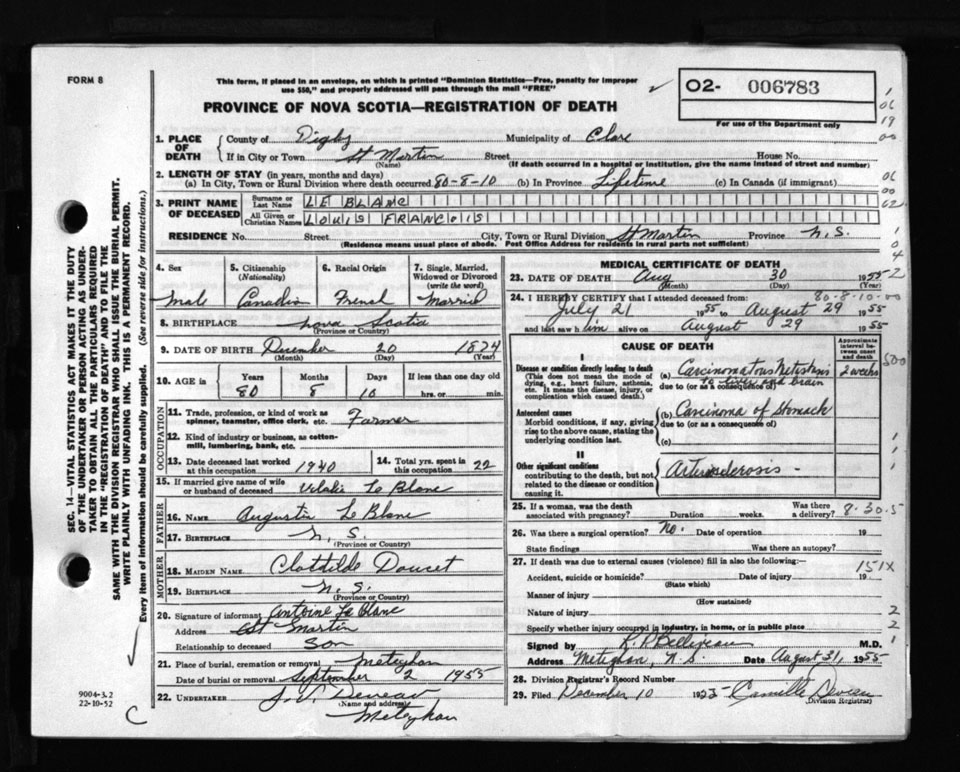 FORM 8
This form, if placed in an envelope, on which is printed "Dominion Statistics—Free, penalty for improper
use $50," and properly addressed will pass through the mail "FREE"
PROVINCE OF NOVA SCOTIA—REGISTRATION OF DEATH
O2- 006783
For use of the Department only
1. PLACE OF DEATH
County of Digby Municipality of Clare
If in City or Town St Martin Street House No.
(Name) (If death occurred in a hospital or institution, give the name instead of street and number)
2. LENGTH OF STAY (in years, months and days)
(a) In City, Town or Rural Division where death occurred 80-8-10 (b) In Province Lifetime (c) In Canada (if immigrant)
3. PRINT NAME OF DECEASED
Surname or Last Name LE BLANC
All Given or Christian Names LOUIS FRANCOIS
RESIDENCE No. Street City, Town or Rural Division St Martin Province N.S.
(Residence means usual place of abode. Post Office Address for residents in rural parts not sufficient)
4. Sex Male
5. Citizenship (Nationality) Canadian
6. Racial Origin French
7. Single, Married, Widowed or Divorced (write the word) Married
8. BIRTHPLACE Nova Scotia
(Province or Country)
9. DATE OF BIRTH December 20 1874
(Month) (Day) (Year)
10. AGE in Years Months Days If less than one day old
80 8 10 hrs. or min.
OCCUPATION
11. Trade, profession, or kind of work as spinner, teamster, office clerk, etc. Farmer
12. Kind of industry or business, as cotton-mill, lumbering, bank, etc.
13. Date deceased last worked at this occupation 1940
14. Total yrs. spent in this occupation 22
15. If married give name of wife or husband of deceased Le Blanc
FATHER
16. NAME Augustin Le Blanc
17. BIRTHPLACE N. S.
(Province or Country)
MOTHER
18. MAIDEN NAME Clothilde Doucet
19. BIRTHPLACE N. S.
(Province or Country)
20. Signature of informant Antoine Le Blanc
Address St Martin
Relationship to deceased Son
21. Place of burial, cremation or removal Meteghan
Date of burial or removal September 2 1955
22. UNDERTAKER
(Name and address)
Meteghan
MEDICAL CERTIFICATE OF DEATH
23. DATE OF DEATH Aug 30 1955
(Month) (Day)
80-8-10-00
24. I HEREBY CERTIFY that I attended deceased from:
July 21 1955 to August 29 1955
and last saw h im alive on August 29 1955
CAUSE OF DEATH
Approximate interval between onset and death
I
Disease or condition directly leading to death
(This does not mean the mode of dying, e.g., heart failure, asthenia, etc. It means the disease, injury, or complication which caused death.)
(a) Carcinomatous 2 weeks
to liver and brain
due to (or as a consequence of)
Antecedent causes
Morbid conditions, if any, giving rise to the above cause, stating the underlying condition last.
(b) Carcinoma of Stomach
due to (or as a consequence of)
(c)
II
Other significant conditions
contributing to the death, but not related to the disease or condition causing it.
Arteriosclerosis -
25. If a woman, was the death associated with pregnancy? Duration weeks. Was there a delivery?
8.30.5
26. Was there a surgical operation? No. Date of operation 19
State findings Was there an autopsy?
27. If death was due to external causes (violence) fill in also the following:—
151X
Accident, suicide or homicide? Date of injury 19
(State which)
Manner of injury
(How sustained)
Nature of injury
Specify whether injury occurred in industry, in home, or in public place
Signed by Belliveau M.D.
Address Meteghan, N. S. Date August 31, 1955
28. Division Registrar's Record Number
29. Filed December 10 Camille
(Division Registrar)
SEC. 14—VITAL STATISTICS ACT MAKES IT THE DUTY
OF THE UNDERTAKER OR PERSON ACTING AS UNDER-
TAKER TO OBTAIN ALL THE PARTICULARS REQUIRED
IN THE "REGISTRATION OF DEATH" AND TO FILE THE
SAME WITH THE DIVISION REGISTRAR WHO SHALL ISSUE THE BURIAL PERMIT.
WRITE PLAINLY WITH UNFADING INK. THIS IS A PERMANENT RECORD.
Every item of information should be carefully supplied. (See reverse side for instructions.)
9004-3.2
22-10-52
C